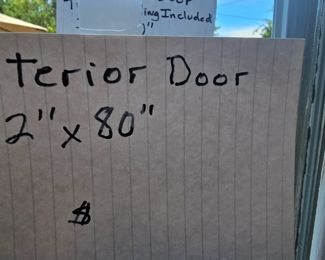 ing Included
)"
terior Door
2" x 80"
$